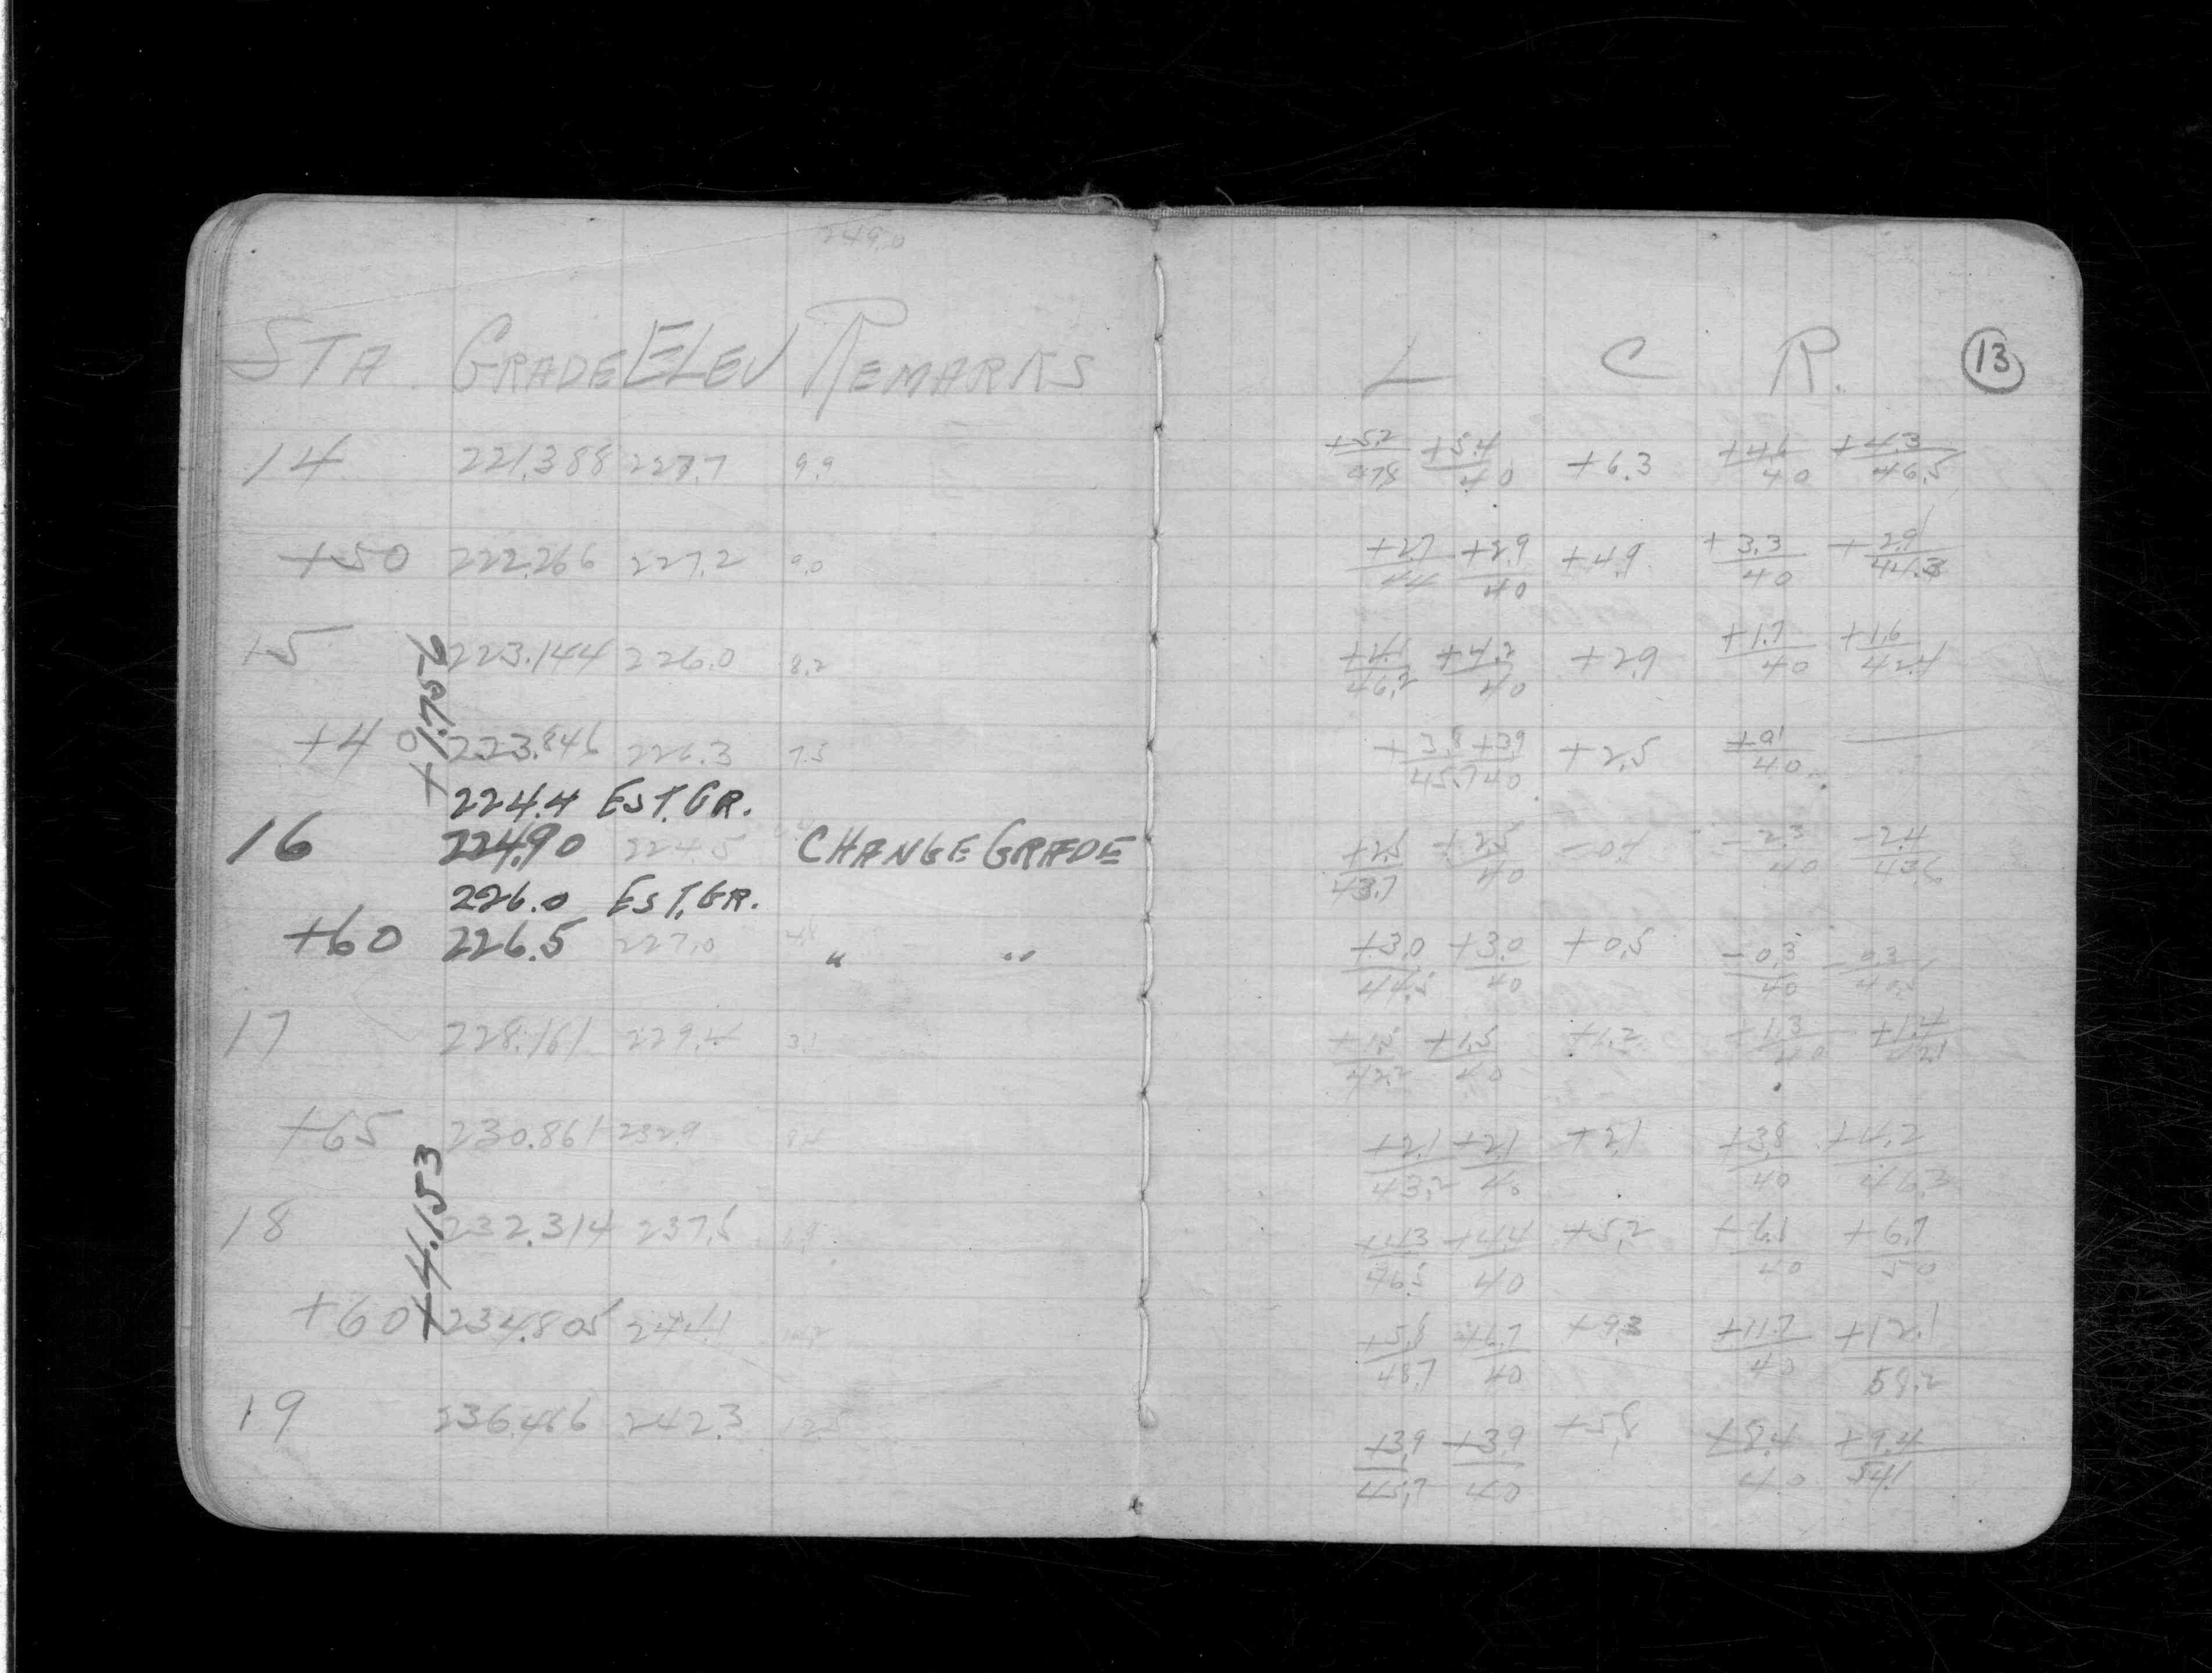 249.0
STA. GRADE ELEV REMARKS
14 221.388 227.7 9.9
+50 222.266 227.2 9.0
15 223.144 226.0 8.2
+40 223.846 226.3 7.5
+1.756
224.4 EST. GR.
16 224.90 224.5 CHANGE GRADE
226.0 EST. GR.
+60 226.5 227.0 " "
17 228.161 229.4 3.1
+65 230.861 232.9
18 232.314 237.5
+4.153
+60 234.805 244.1
19 236.466 242.3
L C R. 13
+5.2 +5.4 +6.3 +4.6 +4.3
47.8 40 40 46.5
+2.7 +2.9 +4.9 +3.3 +2.9
44 40 40 44.3
+4.1 +4.2 +2.9 +1.7 +1.6
46.2 40 40 42.4
+3.8 +3.9 +2.5 +0.1
45.7 40 40
+2.5 +2.5 -0.4 -2.3 -2.4
43.7 40 40 43.6
+3.0 +3.0 +0.5 -0.3 -0.3
44.5 40 40 40.5
+1.5 +1.5 +1.2 +1.3 +1.4
42.2 40 40 42.1
+2.1 +2.1 +2.1 +3.8 +4.2
43.2 40 40 46.3
+4.3 +4.4 +5.2 +6.1 +6.7
46.5 40 40 50
+5.8 +6.7 +9.3 +11.7 +12.1
48.7 40 40 58.2
+3.9 +3.9 +5.8 +8.4 +9.4
45.7 40 40 54.1